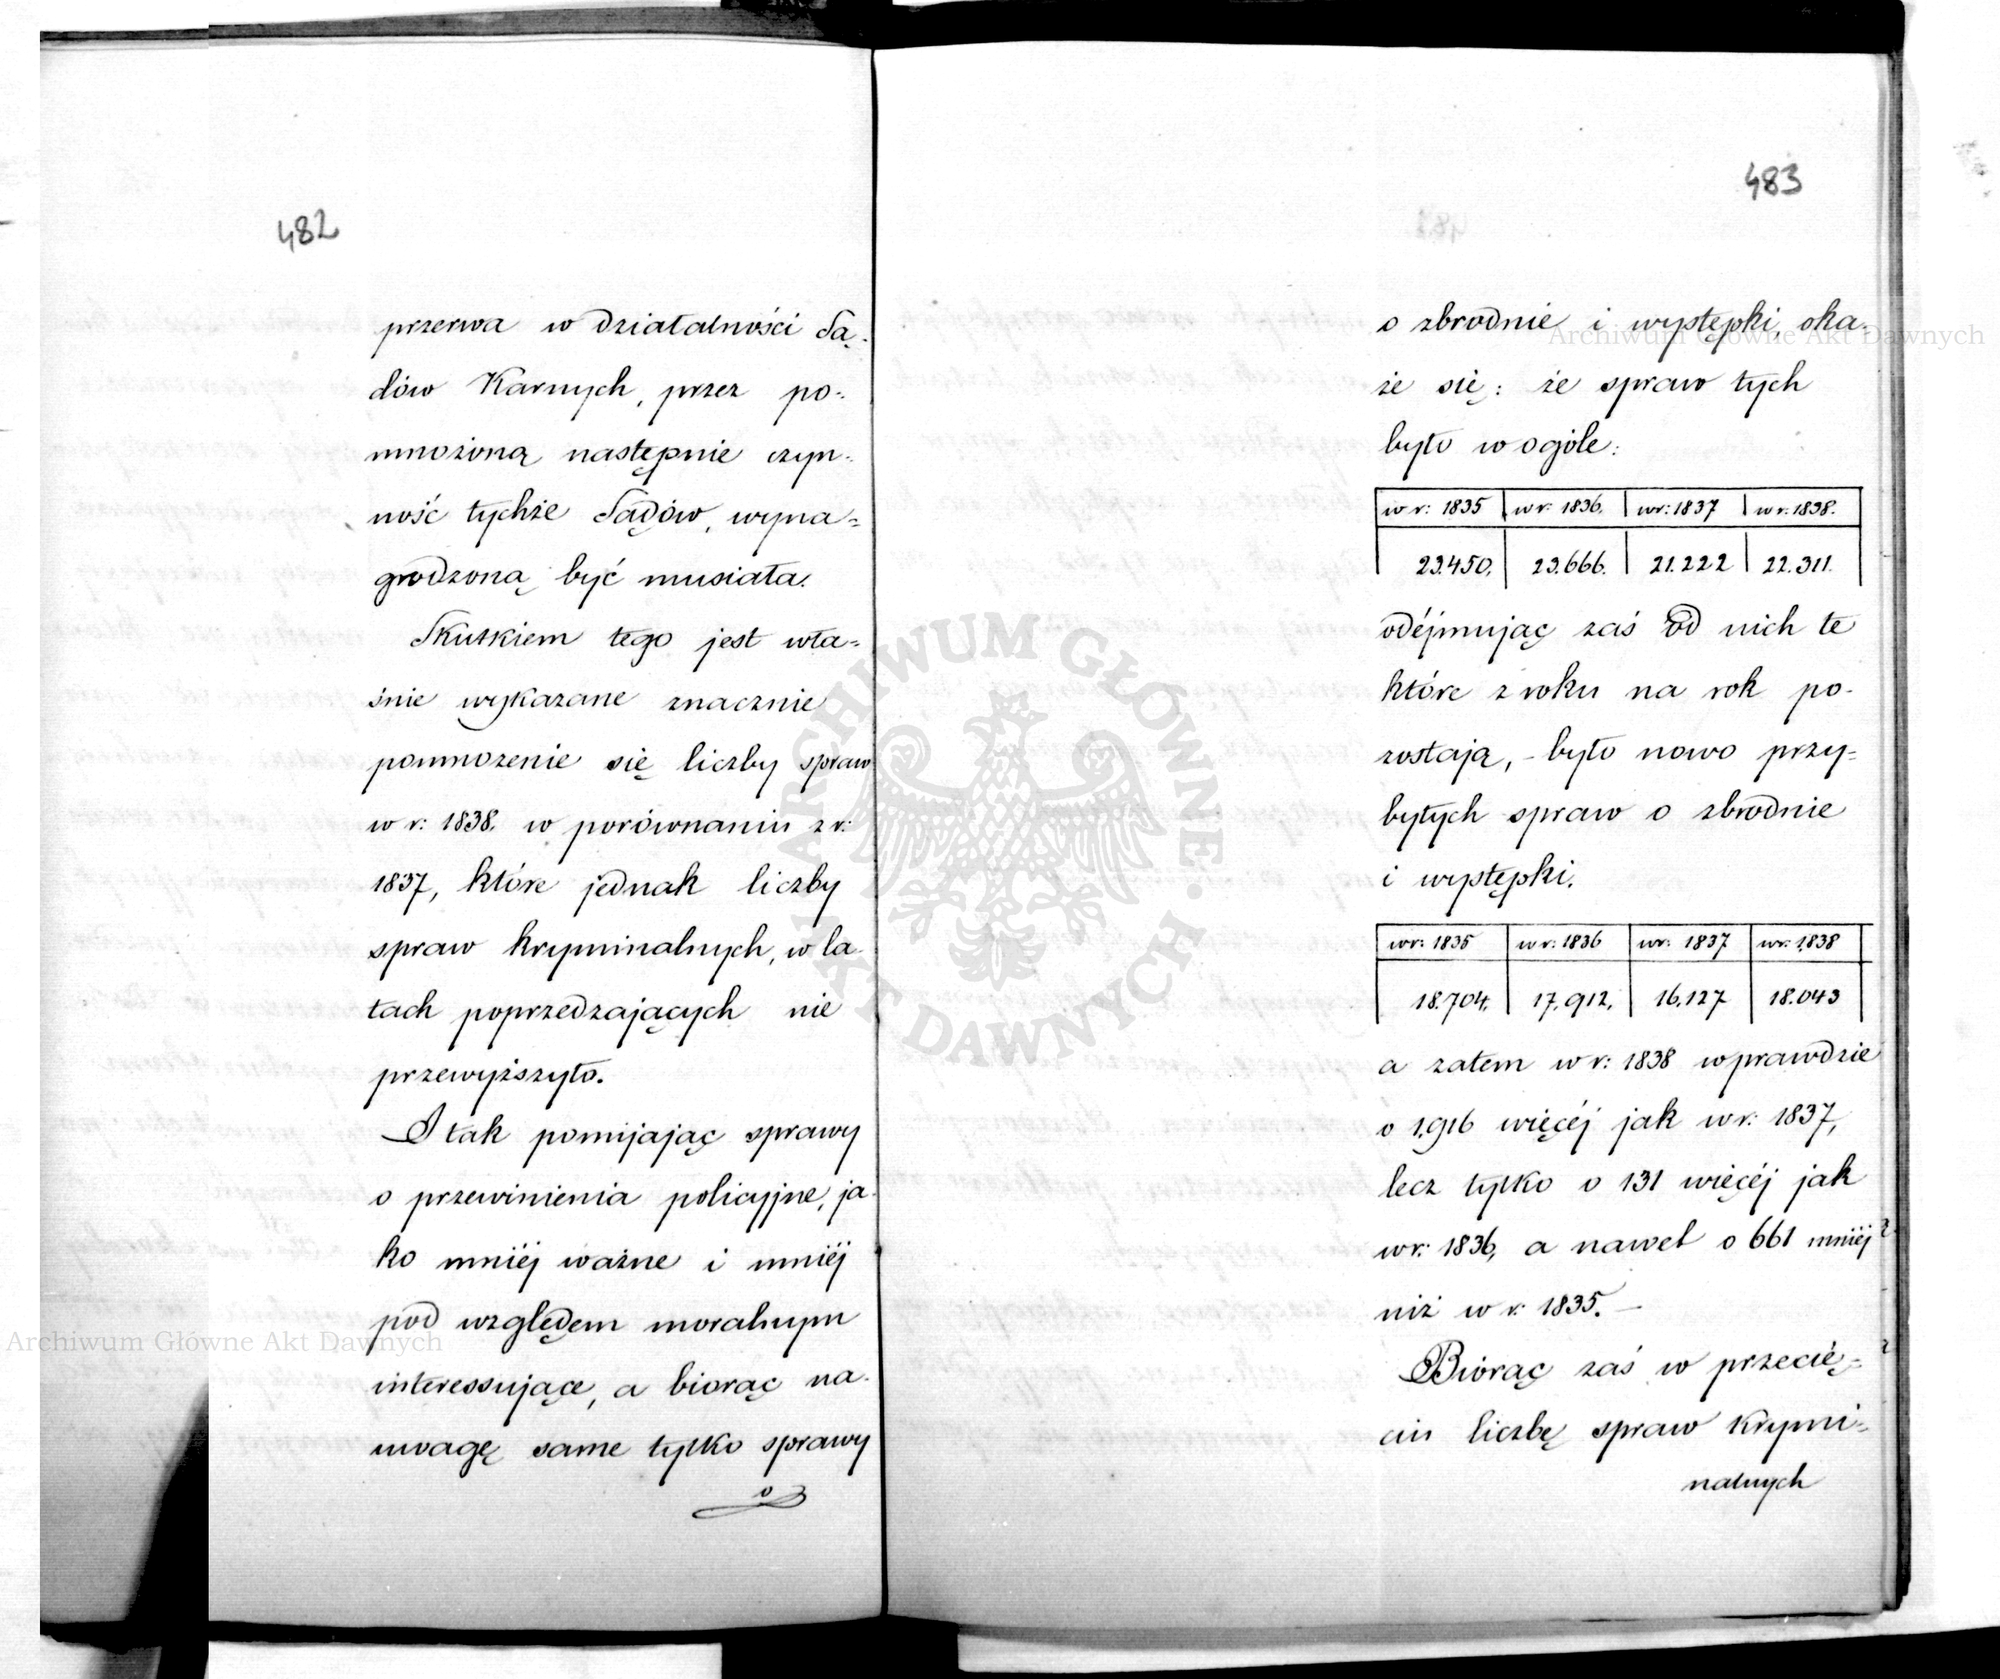 482
przerwa w działalności Są-
dów Karnych, przez po-
mnożoną następnie czyn-
ność tychże Sądów, wyna-
grodzoną być musiała.
Skutkiem tego jest wła-
śnie wykazane znacznie
pomnożenie się liczby spraw
w r: 1838. w porównaniu z r:
1837, które jednak liczby
spraw kryminalnych, w la-
tach poprzedzających nie
przewyższyło.
I tak pomijając sprawy
o przewinienia policyjne, ja-
ko mniéj ważne i mniéj
pod względem moralnym
interessujące, a biorąc na
uwagę same tylko sprawy
o
483
o zbrodnie i występki, oka-
że się: że spraw tych
było w ogóle:
w r: 1835 w r: 1836. w r: 1837 w r: 1838.
23.450. 23.666. 21.222 22.311.
odéjmując zaś od nich te
które z roku na rok po-
zostają, - było nowo przy-
byłych spraw o zbrodnie
i występki.
w r: 1835 w r: 1836 w r: 1837 w r: 1838
18.704. 17.912. 16.127 18.043
a zatem w r: 1838 wprawdzie
o 1.916 więcéj jak w r: 1837,
lecz tylko o 131 więcéj jak
w r: 1836, a nawet o 661 mniéj
niż w r: 1835. —
Biorąc zaś w przecię-
ciu liczbę spraw krymi-
nalnych
ARCHIWUM GŁÓWNE AKT DAWNYCH
Archiwum Główne Akt Dawnych
Archiwum Główne Akt Dawnych